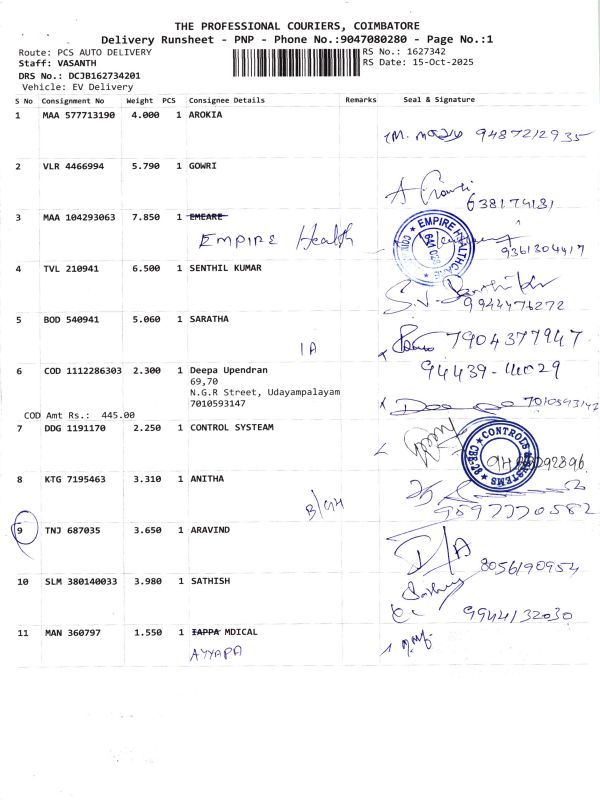 THE PROFESSIONAL COURIERS, COIMBATORE
Delivery Runsheet - PNP - Phone No.:9047080280 - Page No.:1
Route: PCS AUTO DELIVERY
RS No.: 1627342
Staff: VASANTH
RS Date: 15-Oct-2025
DRS No.: DCJB162734201
Vehicle: EV Delivery
S No Consignment No Weight PCS Consignee Details Remarks Seal & Signature
1 MAA 577713190 4.000 1 AROKIA
9487212935
2 VLR 4466994 5.790 1 GOWRI
638174131
3 MAA 104293063 7.850 1 EMEARE
EMPIRE Health
EMPIRE HEALTHCA
9361304417
4 TVL 210941 6.500 1 SENTHIL KUMAR
9944476272
5 BOD 540941 5.060 1 SARATHA
7904377947
1A
6 COD 1112286303 2.300 1 Deepa Upendran
94439-
69,70
N.G.R Street, Udayampalayam
7010593147
7010593142
COD Amt Rs.: 445.00
7 DDG 1191170 2.250 1 CONTROL SYSTEAM
CONTROLS SYSTEMS CBE-
8 KTG 7195463 3.310 1 ANITHA
B/GH
9597770582
9 TNJ 687035 3.650 1 ARAVIND
D/A
8056190954
10 SLM 380140033 3.980 1 SATHISH
9944132030
11 MAN 360797 1.550 1 IAPPA MDICAL
AYYAPA